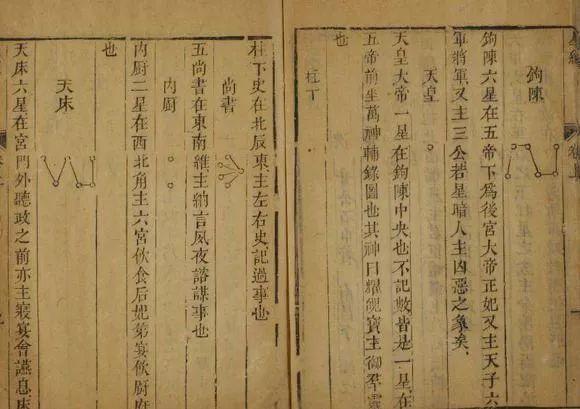 鉤陳
鉤陳六星在五帝下為後宮大帝正妃又主天子六
軍將軍又主三公若星暗人主凶惡之象矣
天皇
天皇大帝一星在鉤陳中央也不記數皆是一星在
五帝前坐萬神輔錄圖也其神曰耀魄寶主御羣靈
也
柱下
柱下史在北辰東主左右史記過事也
尚書
五尚書在東南維主納言夙夜諮謀事也
內廚
內廚二星在西北角主六宮飲食后妃第宴飲廚府
也
天床
天床六星在宮門外聽政之前亦主寢宴會讌息床